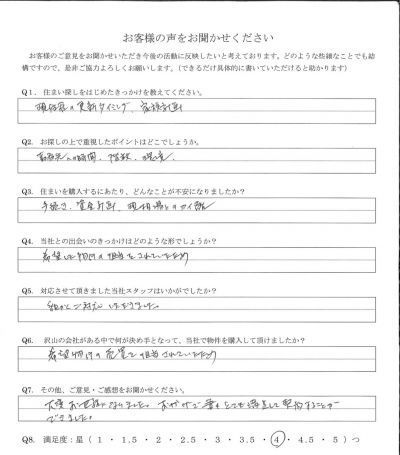 お客様の声をお聞かせください
お客様のご意見をお聞かせいただき今後の活動に反映したいと考えております。どのような些細なことでも結
構ですので、是非ご協力よろしくお願いします。(できるだけ具体的に書いていただけると助かります)
Q1. 住まい探しをはじめたきっかけを教えてください。
の更新タイミング、家族計画
Q2. お探しの上で重視したポイントはどこでしょうか。
への時間、階数、環境、
Q3. 住まいを購入するにあたり、どんなことが不安になりましたか?
手続き、資金計画、
Q4. 当社との出会いのきっかけはどのような形でしょうか?
希望した物件の担当をされていたため
Q5. 対応させて頂きました当社スタッフはいかがでしたか?
細かくご対応いただきました。
Q6. 沢山の会社がある中で何が決め手となって、当社で物件を購入して頂けましたか?
希望物件の売買で担当されていたため
Q7. その他、ご意見・ご感想をお聞かせください。
大変お世話になりました。おかげで妻もとても満足して契約することが
できました。
Q8. 満足度:星(1 ・ 1.5 ・ 2 ・ 2.5 ・ 3 ・ 3.5 ・ 4 ・ 4.5 ・ 5)つ